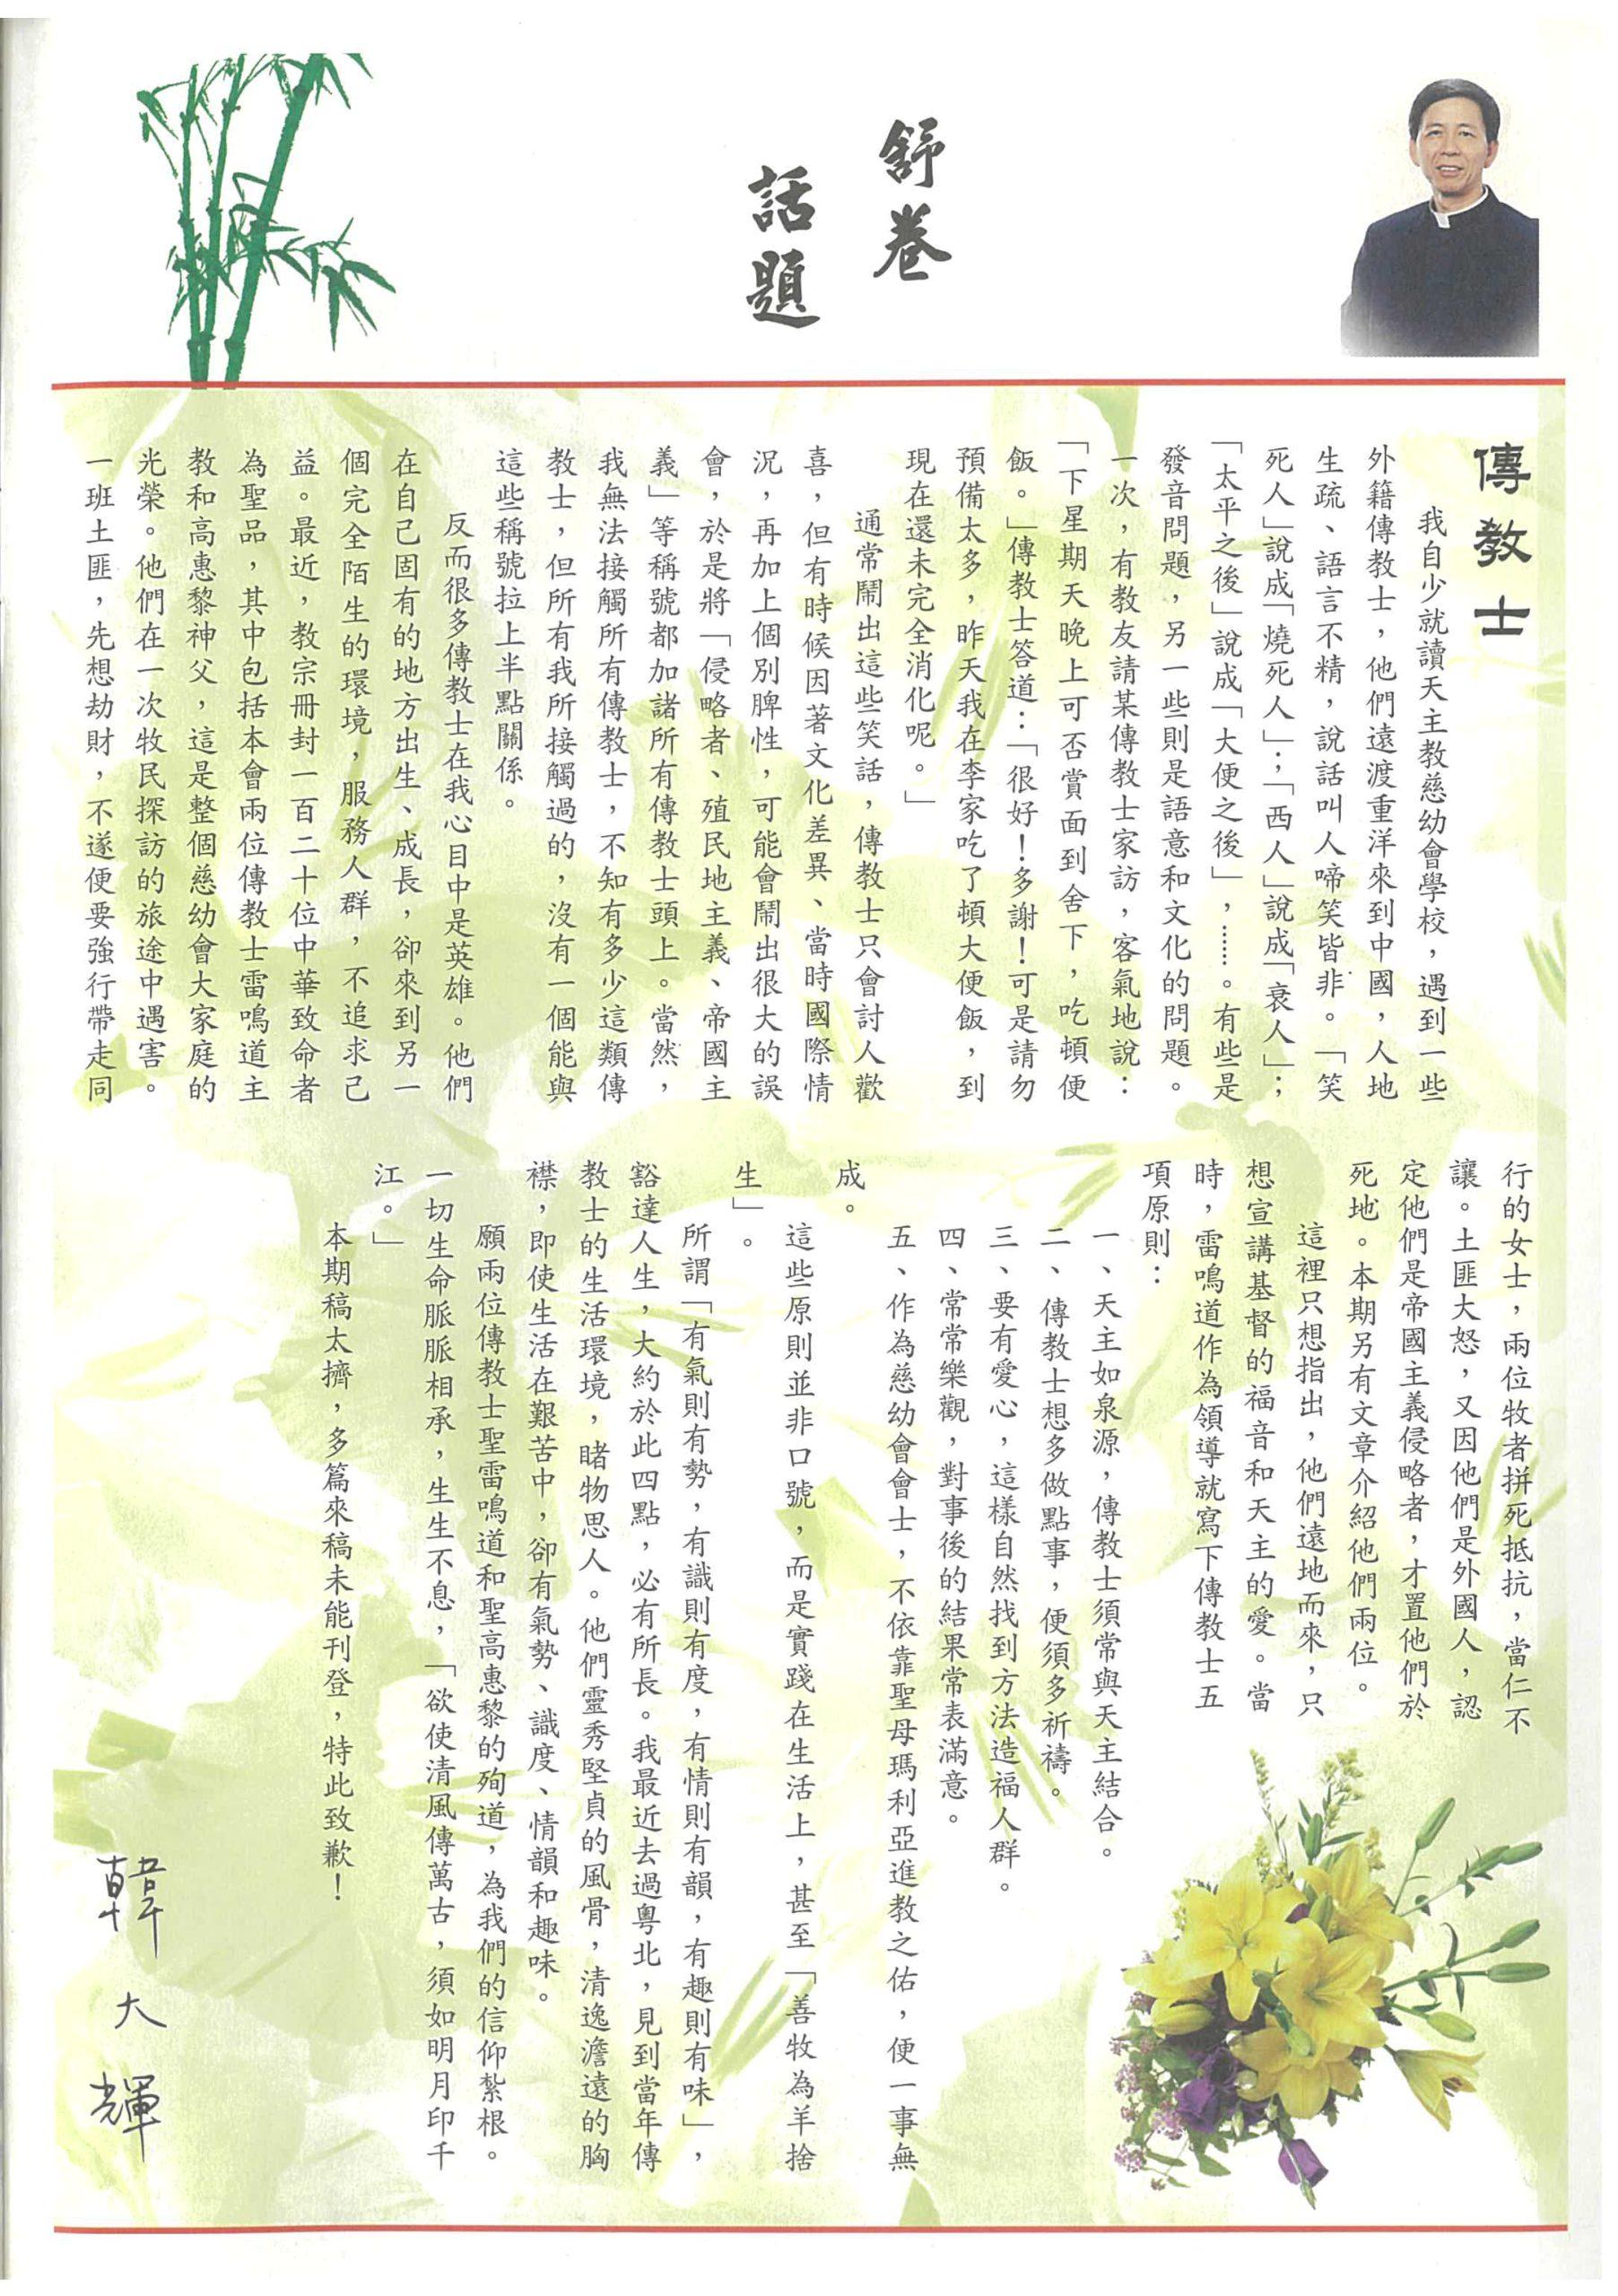 舒卷
話題
傳教士
我自少就讀天主教慈幼會學校，遇到一些
外籍傳教士，他們遠渡重洋來到中國，人地
生疏、語言不精，說話叫人啼笑皆非。「笑
死人」說成「燒死人」；「西人」說成「衰人」；
「太平之後」說成「大便之後」，……。有些是
發音問題，另一些則是語意和文化的問題。
一次，有教友請某傳教士家訪，客氣地說：
「下星期天晚上可否賞面到舍下，吃頓便
飯。」傳教士答道：「很好！多謝！可是請勿
預備太多，昨天我在李家吃了頓大便飯，到
現在還未完全消化呢。」
通常鬧出這些笑話，傳教士只會討人歡
喜，但有時候因著文化差異、當時國際情
況，再加上個別脾性，可能會鬧出很大的誤
會，於是將「侵略者、殖民地主義、帝國主
義」等稱號都加諸所有傳教士頭上。當然，
我無法接觸所有傳教士，不知有多少這類傳
教士，但所有我所接觸過的，沒有一個能與
這些稱號拉上半點關係。
反而很多傳教士在我心目中是英雄。他們
在自己固有的地方出生、成長，卻來到另一
個完全陌生的環境，服務人群，不追求己
益。最近，教宗冊封一百二十位中華致命者
為聖品，其中包括本會兩位傳教士雷鳴道主
教和高惠黎神父，這是整個慈幼會大家庭的
光榮。他們在一次牧民探訪的旅途中遇害。
一班土匪，先想劫財，不遂便要強行帶走同
行的女士，兩位牧者拼死抵抗，當仁不
讓。土匪大怒，又因他們是外國人，認
定他們是帝國主義侵略者，才置他們於
死地。本期另有文章介紹他們兩位。
這裡只想指出，他們遠地而來，只
想宣講基督的福音和天主的愛。當
時，雷鳴道作為領導就寫下傳教士五
項原則：
一、天主如泉源，傳教士須常與天主結合。
二、傳教士想多做點事，便須多祈禱。
三、要有愛心，這樣自然找到方法造福人群。
四、常常樂觀，對事後的結果常表滿意。
五、作為慈幼會會士，不依靠聖母瑪利亞進教之佑，便一事無
成。
這些原則並非口號，而是實踐在生活上，甚至「善牧為羊捨
生」。
所謂「有氣則有勢，有識則有度，有情則有韻，有趣則有味」，
豁達人生，大約於此四點，必有所長。我最近去過粵北，見到當年傳
教士的生活環境，睹物思人。他們靈秀堅貞的風骨，清逸澹遠的胸
襟，即使生活在艱苦中，卻有氣勢、識度、情韻和趣味。
願兩位傳教士聖雷鳴道和聖高惠黎的殉道，為我們的信仰紮根。
一切生命脈脈相承，生生不息，「欲使清風傳萬古，須如明月印千
江。」
本期稿太擠，多篇來稿未能刊登，特此致歉！
韓大輝